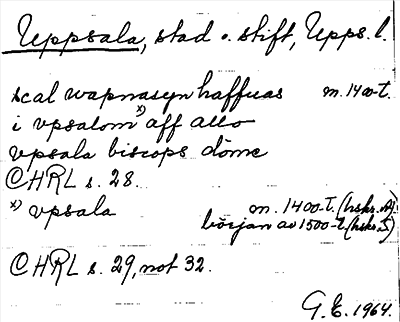 Uppsala, stad o. stift, Upps. l.
scal wapnasyn haffuas m. 1400-t.
i vpsalom x) aff allo
vpsala biscops döme
CHRL s. 28.
x) vpsala m. 1400-t. (hskr. A).
början av 1500-t. (hskr. I)
CHRL s. 29, not 32.
G.E. 1964.